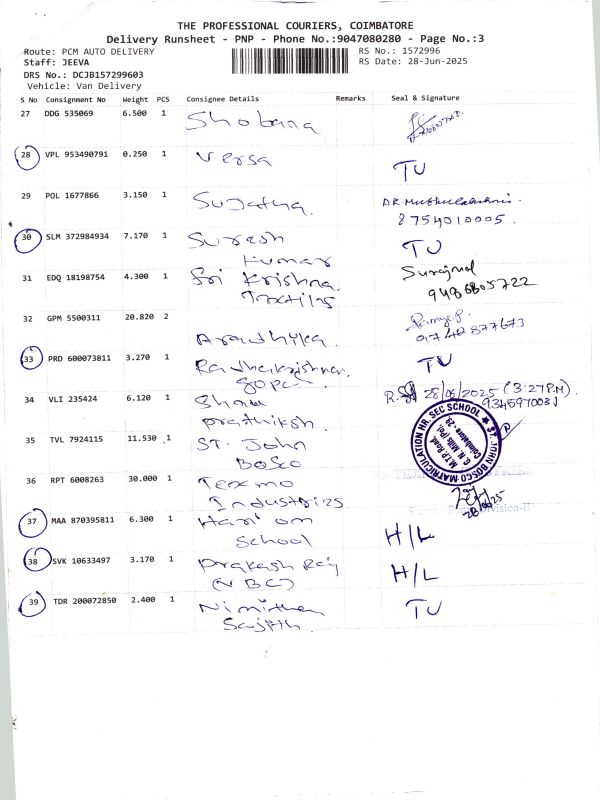 THE PROFESSIONAL COURIERS, COIMBATORE
Delivery Runsheet - PNP - Phone No.:9047080280 - Page No.:3
Route: PCM AUTO DELIVERY RS No.: 1572996
Staff: JEEVA RS Date: 28-Jun-2025
DRS No.: DCJB157299603
Vehicle: Van Delivery
S No Consignment No Weight PCS Consignee Details Remarks Seal & Signature
27 DDG 535069 6.500 1 Shobana
28 VPL 953490791 0.250 1 Versa TU
29 POL 1677866 3.150 1 Sujatha. 
8754010005.
30 SLM 372984934 7.170 1 Suresh Kumar TU
31 EDQ 18198754 4.300 1 Sri Krishna Textiles
9486805722
32 GPM 5500311 20.820 2 Aradhyka.
33 PRD 600073811 3.270 1 Radhakrishnan gopal TU
34 VLI 235424 6.120 1 28/06/2025 (3:27P.M)
prathiksh.
35 TVL 7924115 11.530 1 ST. John Bosco
ST. JOHN BOSCO MATRICULATION HR. SEC SCHOOL
M.T.P. Road,
G. N. Mills (Po),
Coimbatore - 29.
36 RPT 6008263 30.000 1 Texmo Industries
28/6/25
37 MAA 870395811 6.300 1 Hari om School H/L
38 SVK 10633497 3.170 1 Prakash Raj (VBC) H/L
39 TDR 200072850 2.400 1 TU
Sajith.